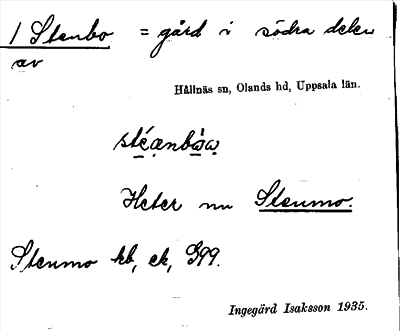 1 Stenbo = gård i södra delen
av
Hållnäs sn, Olands hd, Uppsala län.
Heter nu Stenmo.
Stenmo kb, ek, G99.
Ingegärd Isaksson 1935.